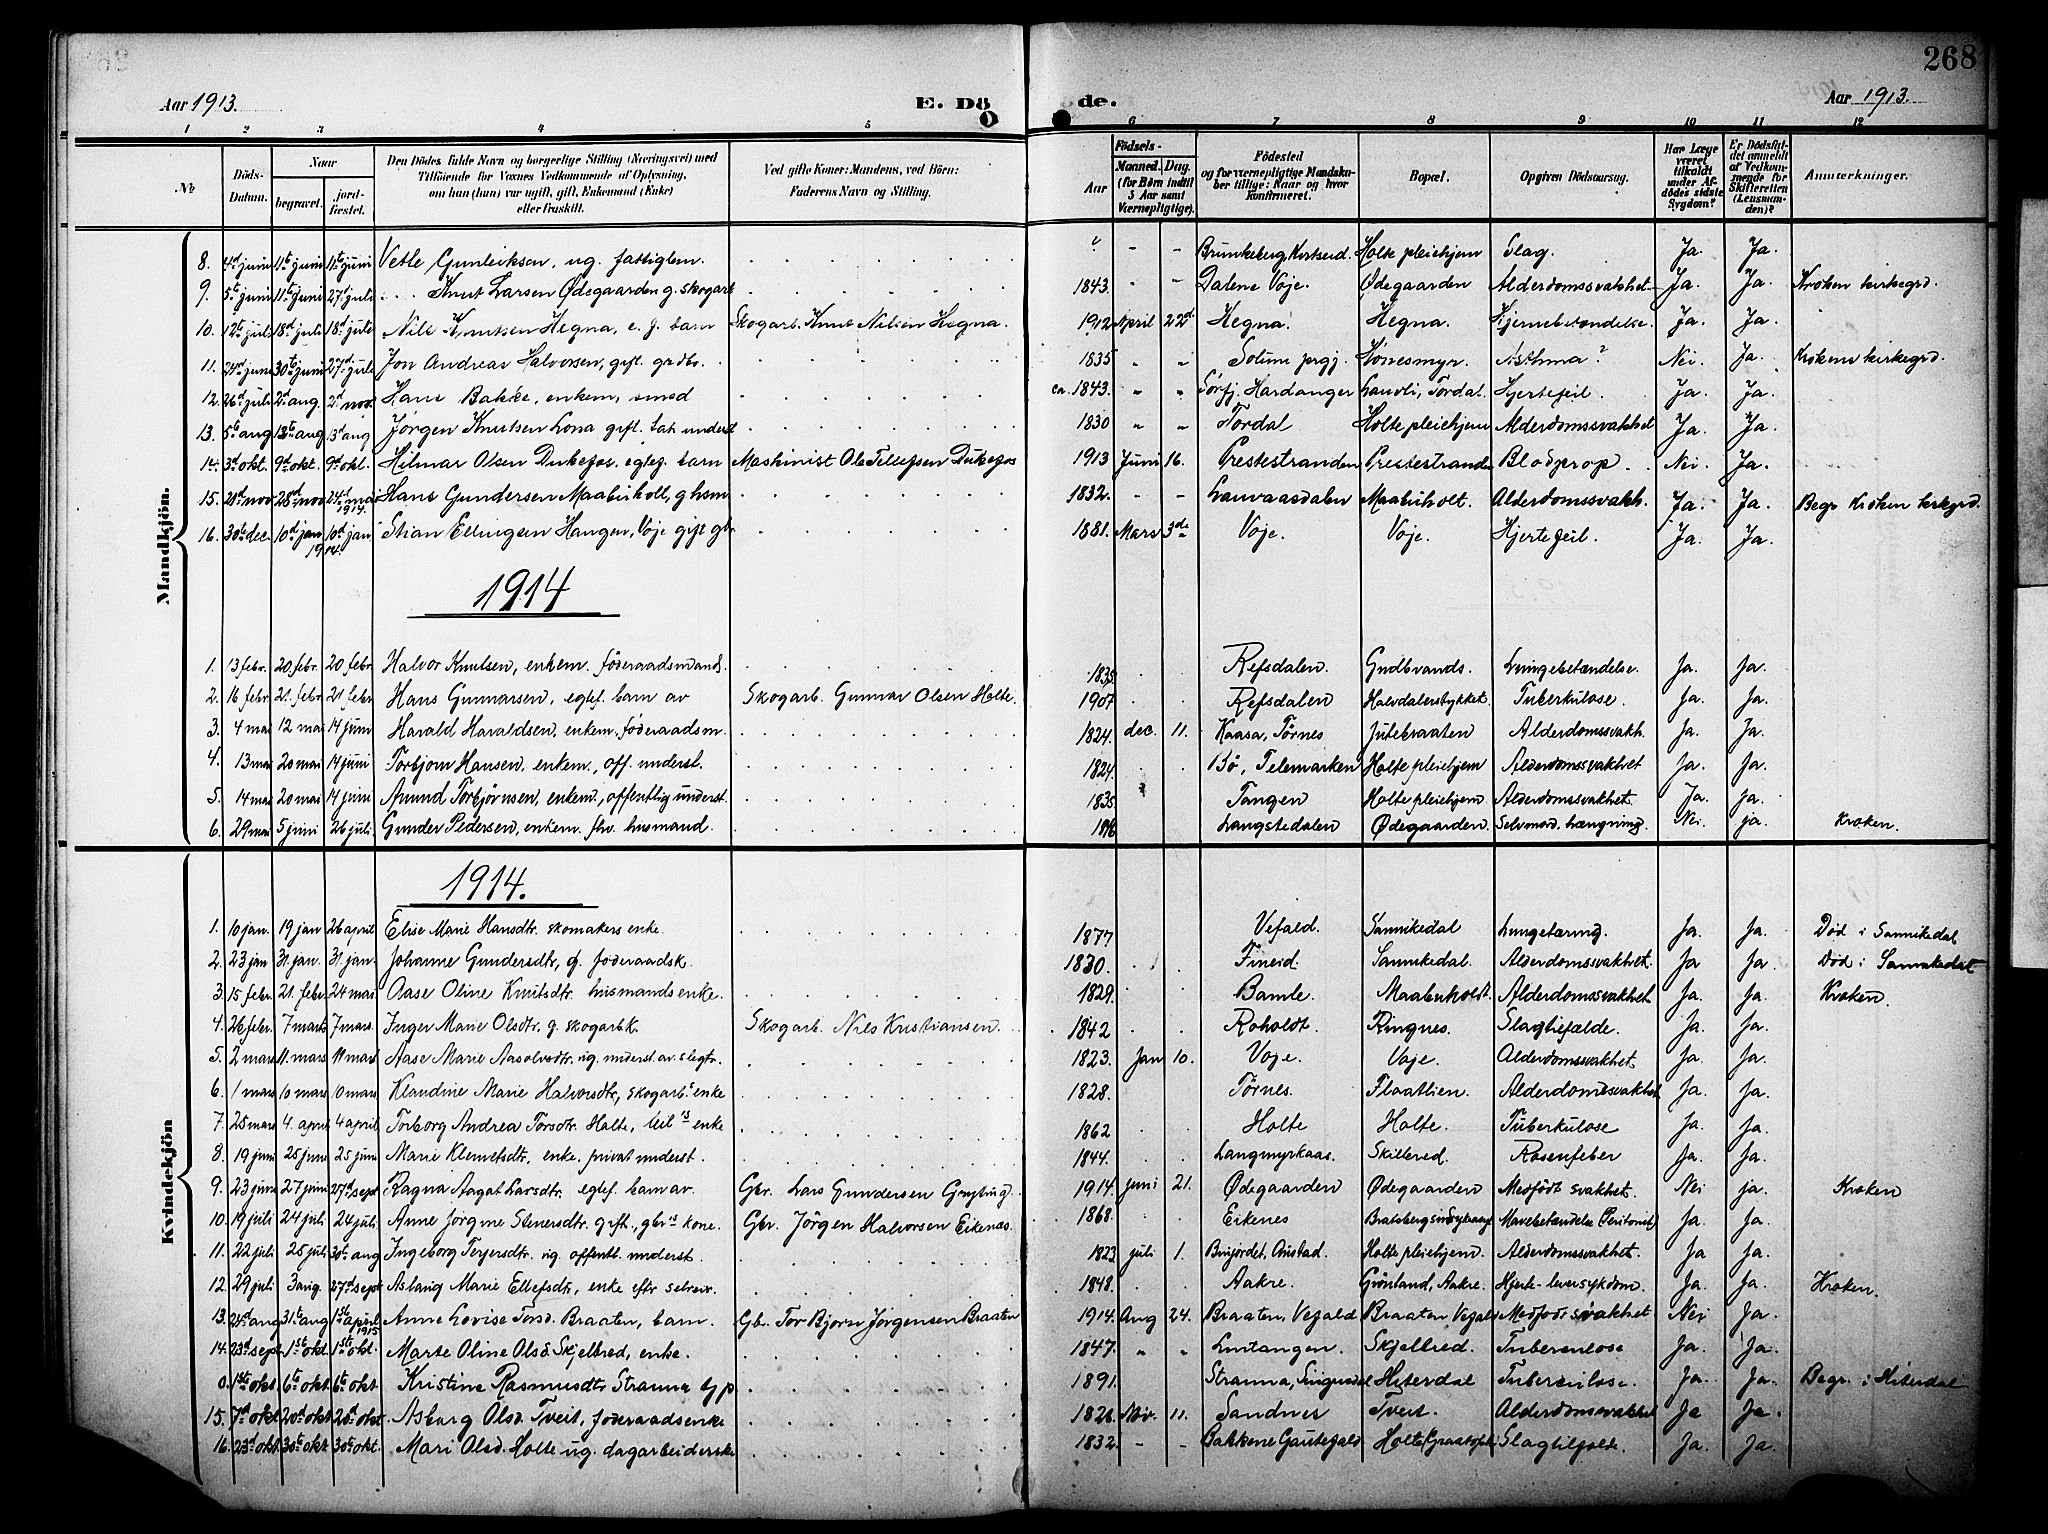 268
Aar 1913. E. Dö de. Aar 1913.
1 2 3 4 5 6 7 8 9 10 11 12
No
Döds-Datum.
Naar begravet. jordfæstet.
Den Dödes fulde Navn og borgerlige Stilling (Næringsvei) med Tilföiende for Voxnes Vedkommende af Oplysning, om han (hun) var ugift, gift, Enkemand (Enke) eller fraskilt.
Ved gifte Koner: Mandens, ved Börn: Faderens Navn og Stilling.
Födsels-
Aar Maaned. Dag. (for Börn indtil 5 Aar samt Værnepligtige).
Födested og for værnepligtige Mandskaber tillige: Naar og hvor konfirmeret.
Bopæl.
Opgiven Dödsaarsag.
Har Læge været tilkaldt under Afdödes sidste Sygdom?
Er Dödsfaldet anmeldt af Vedkommende for Skifteretten (Lensmanden)?
Anmærkninger.
Mandkjön.
8. 4d juni 11te juni 11te juni Vetle Gunleiksen, ug. fattiglem. Brunkeberg, Kviteseid. Holte pleiehjem Slag. Ja. Ja.
9. 5te juni 11te juni 27d juli Knut Larsen Ødegaarden g. skogarb 1843. Dalene Voje. Ødegaarden Alderdomssvakhet Ja. Ja. Kroken kirkegrd.
10. 12te juli 18d juli 18d juli Nils Knutsen Hegna, e. f. barn Skogarb. Knut Nilsen Hegna. 1912 April 22d Hegna. Hegna. Hjernebetændelse. Ja. Ja.
11. 24d juni 30te juni 27d juli Jon Andreas Halvorsen, gift. grdbr. 1835 Solum prgj. Hönesmyr. Asthma? Nei. Ja. Krokens kirkegrd.
12. 26d juli 2d aug. 2d nov. Hans Bakke, enkem, smed ca. 1843. Sörfj. Hardanger Landli, Tordal. Hjertefeil. Ja. Ja.
13. 5te aug 13te aug 13d aug Jørgen Knutsen Lona gift. fat. underst 1830 Tordal Holte pleiehjem Alderdomssvakhet Ja. Ja.
14. 3d okt. 9d okt. 9d okt. Hilmar Olsen Dukefos, egtef. barn Maskinist Ole Tellefsen Dukefos 1913 Juni 16. Prestestranden Prestestranden Blodprop. Nei. Ja.
15. 21d nov. 28d nov 24d mai 1914. Hans Gundersen Maaberholt, g hsm 1832. Lauvaasdalen Maaberholt. Alderdomssvakh. Ja. Ja. Begr Kroken kirkgrd.
16. 30te dec. 10d jan 10d jan 1914. Stian Ellingsen Haugen, Voje gift gbr. 1881. Mars 3de Voje. Voje. Hjertefeil. Ja. Ja.
1914
1. 13 febr. 20 febr. 20 febr. Halvor Knutsen, enkem. föderaadsmand. 1835 Refsdalen. Gudbrands. Lungebetændelse. Ja. Ja.
2. 16 febr. 21. febr. 21 febr Hans Gunnarsen, egtef. barn av Skogarb. Gunnar Olsen Holte. 1907 Refsdalen Halvdalerstykket Tuberkulose. Ja. Ja.
3. 4 mai 12 mai 14 juni Harald Haraldsen, enkem. föderaadsm. 1824. dec. 11. Kaasa, Törnes Jutebraaten Alderdomssvakh. Ja. Ja.
4. 13 mai 20 mai 14 juni Torbjørn Hansen, enkem., off. underst. 1824. Bö, Telemarken Holte pleiehjem Alderdomssvakhet Ja. Ja.
5. 14 mai 20 mai 14 juni Amund Torbjørnsen, enkem., offentlig underst. 1835 Tangen Holte pleiehjem Alderdomssvakhet. Ja. ja.
6. 29 mai 5 juni 26 juli. Gunder Pedersen, enkem. fhv. husmand. Langstedalen Ødegaarden. Selvmord. Hængning. Nei. ja. Kroken.
Kvindekjön
1914.
1. 10 jan. 19 jan 26 april Elise Marie Hansdtr. skomakers enke. 1877 Vefald. Sannikedal Lungetæring. Ja. Ja. Död i Sannikedal
2. 23 jan 31. jan. 31. jan. Johanne Gundersdtr, g. föderaadsk. 1830. Fineid. Sannikedal. Alderdomssvakhet. Ja Ja. Död i Sannikedal
3. 15 febr. 21. febr. 24 mai Aase Oline Knutsdtr. husmandsenke. 1829. Bamle. Maaberholdt. Alderdomssvakhet Ja. Ja. Kroken.
4. 26 febr. 7 mars 7 mars. Inger Marie Olsdtr. g. skogarb.k. Skogarb. Nils Kristiansen. 1842 Roholdt. Ringnes. Slagtilfælde. Ja. Ja.
5. 2 mars 11. mars 11 mars Aase Marie Aasolvsdtr. ug. underst. av slegtn. 1823. Jan 10. Voje. Voje. Alderdomssvakhet. Ja. Ja.
6. 1 mars 10 mars 10 mars Klaudine Marie Halvorsdtr, skogarb.s enke 1828. Törnes. Flaatlien. Alderdomssvakhet Ja. Ja.
7. 25 mars 4. april 4 april. Torborg Andrea Torsdtr. Holte, leil.rs enke 1862 Holte Holte. Tuberkulose Ja. Ja.
8. 19 juni 25 juni 25 juni Marie Klemetsdtr. enke. privat underst. 1844. Langmyrkaas. Skilbred. Rosenfeber Ja. Ja.
9. 23 juni 27 juni 27d sept Ragna Aagot Larsdtr. egtef. barn av. Gbr. Lars Gundersen 1914 juni 21. Ødegaarden Ødegaarden. Medfødt svakhet. Nei ja. Kroken
10. 19 juli 24 juli 24 juli Anne Jørgine Stenersdtr. gift, gbr.s kone. Gbr. Jörgen Halvorsen Eikenes. 1868. Eikenes Bratsberg Mavebetændelse (Peritonit) Ja. Ja.
11. 22 juli. 25 juli 30te aug Ingeborg Terjersdtr. ug. offentl. underst. 1823 juli 1. Holte pleiehjem. Alderdomssvakhet. Ja Ja.
12. 29 juli 3 aug. 27d sept Aslaug Marie Ellefsdtr, enke eftr selveier. 1848. Aakre. Grönland, Aakre. Hjerte- leversykdom. Ja. Ja. Kroken.
13. 24d aug 31te aug 1ste april 1915 Anne Lovise Torsd. Braaten, barn. Gb. Tor Bjørn Jørgensen Braaten 1914. Aug 24. Braaten, Vefald Braaten Vefald Medfödt svakhet Nei Ja.
14. 23d sept 1ste okt. 1ste okt. Marte Oline Olsd Skjelbred, enke. 1847. Lintangen. Skjelbred. Tuberculose Ja Ja.
0. 1ste okt. 6te okt. 6te okt Kristine Rasmusdtr Stranna 1891. Stranna, Hiterdal Tuberculose. Ja. Ja. Begr. i Hiterdal
15. 7d okt 20d okt 20d okt Asborg Olsd Tveit, föderaadsenke 1826. Nov. 11. Sandnes Tveit. Alderdomssvakhet Ja Ja.
16. 23d okt. 30te okt. 30te okt. Mari Olsd. Holte ug. dagarbeiderske 1832. Bakkene Gautefald Holte Slagtilfelde. Ja. Ja.